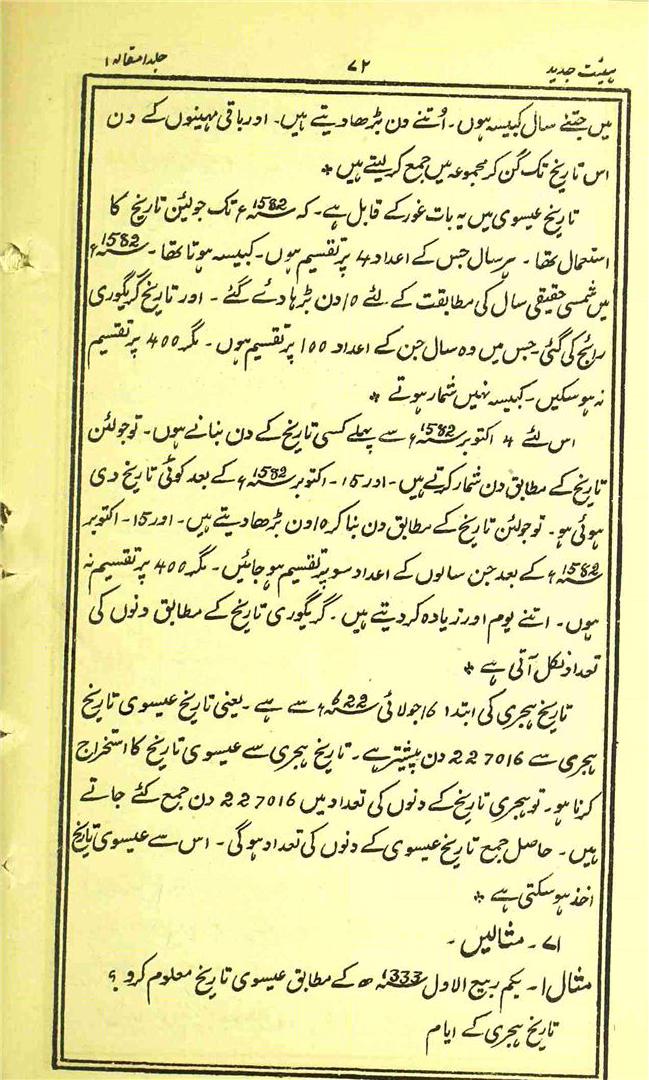 ہیئت جدید ۷۲ جلد ا مقالہ ا
میں جتنے سال کبیسہ ہوں۔ اُتنے دن بڑھا دیتے ہیں۔ اور باقی مہینوں کے دن
اس تاریخ تک گن کر مجموعہ میں جمع کر لیتے ہیں *
تاریخ عیسوی میں یہ بات غور کے قابل ہے۔ کہ 1582ء تک جولئین تاریخ کا
استعمال تھا۔ ہر سال جس کے اعداد 4 پر تقسیم ہوں۔ کبیسہ ہوتا تھا۔ 1582ء
میں شمسی حقیقی سال کی مطابقت کے لئے 10 دن بڑہا دئے گئے۔ اور تاریخ گریگوری
رائج کی گئی۔ جس میں وہ سال جن کے اعداد 100 پر تقسیم ہوں۔ مگر 400 پر تقسیم
نہ ہو سکیں۔ کبیسہ نہیں شمار ہوتے *
اس لئے 4 اکتوبر 1582ء سے پہلے کسی تاریخ کے دن بنانے ہوں۔ تو جولئن
تاریخ کے مطابق دن شمار کرتے ہیں۔ اور 15۔ اکتوبر 1582ء کے بعد کوئی تاریخ دی
ہوئی ہو۔ تو جولئن تاریخ کے مطابق دن بنا کر 10 دن بڑھا دیتے ہیں۔ اور 15۔ اکتوبر
1582ء کے بعد جن سالوں کے اعداد سو پر تقسیم ہو جائیں۔ مگر 400 پر تقسیم نہ
ہوں۔ اتنے یوم اور زیادہ کر دیتے ہیں۔ گریگوری تاریخ کے مطابق دنوں کی
تعداد نکل آتی ہے *
تاریخ ہجری کی ابتدا 16 جولائی 622ء سے ہے۔ یعنی تاریخ عیسوی تاریخ
ہجری سے 227016 دن پیشتر ہے۔ تاریخ ہجری سے عیسوی تاریخ کا استخراج
کرنا ہو۔ تو ہجری تاریخ کے دنوں کی تعداد میں 227016 دن جمع کئے جاتے
ہیں۔ حاصل جمع تاریخ عیسوی کے دنوں کی تعداد ہوگی۔ اس سے عیسوی تاریخ
اخذ ہو سکتی ہے *
۷۱۔ مثالیں۔
مثال ا۔ یکم ربیع الاول 1333ھ کے مطابق عیسوی تاریخ معلوم کرو؟
تاریخ ہجری کے ایام